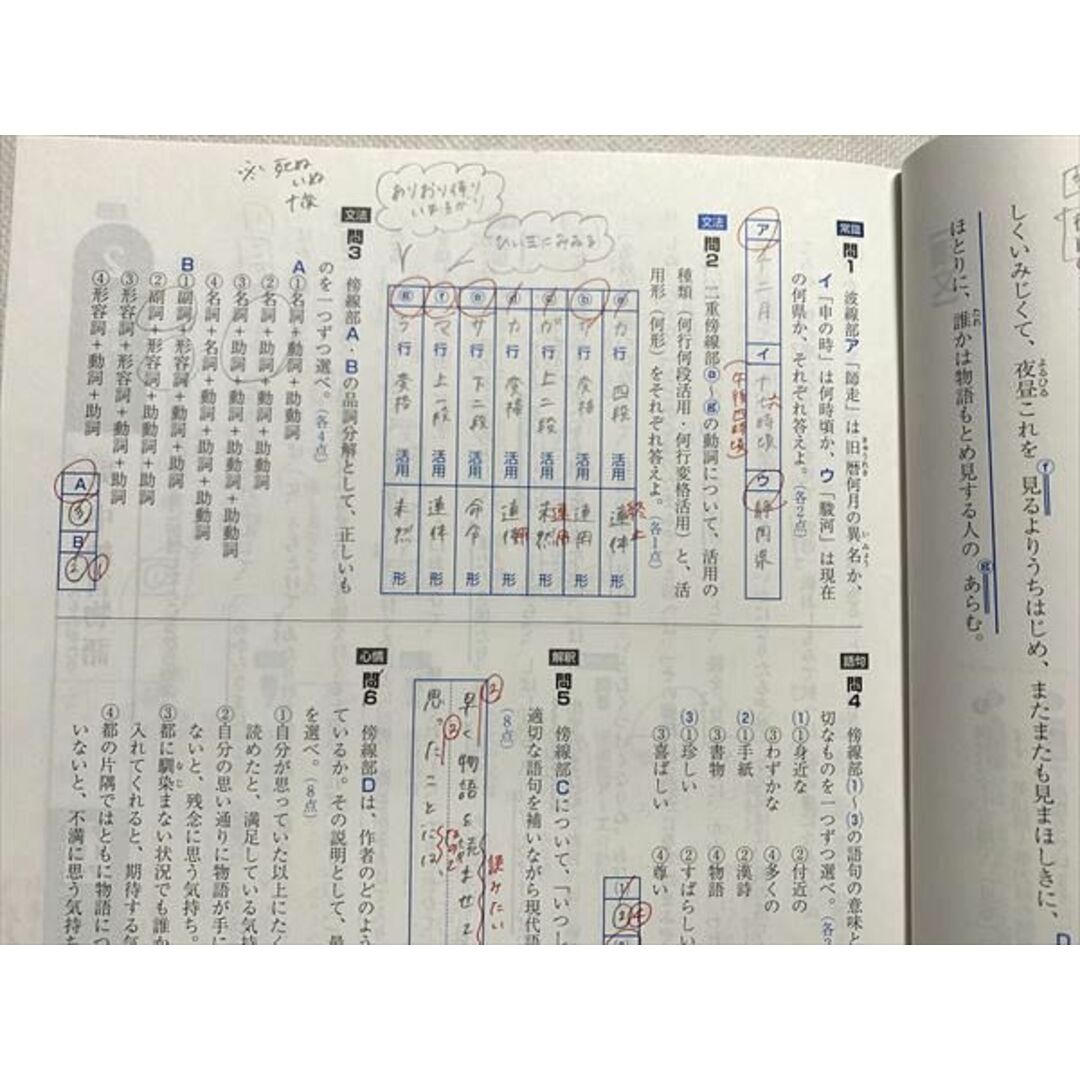 しくいみじくて、夜昼これを見るよりうちはじめ、またまたも見まほしきに、
よるひる
ⓕ
ほとりに、誰かは物語もとめ見する人のあらむ。
たれ
ⓖ
常識 問1 波線部ア「師走」は旧暦何月の異名か、
きゅうれき いみょう
イ「申の時」は何時頃か、ウ「駿河」は現在
の何県か、それぞれ答えよ。(各2点)
ア 十二月 イ 十六時頃 ウ 静岡県
午後四時頃
文法 問2 二重傍線部ⓐ～ⓖの動詞について、活用の
種類(何行何段活用・何行変格活用)と、活
用形(何形)をそれぞれ答えよ。(各1点)
ⓐ カ行 四段 活用 連体 形
終止
ⓑ 行 変格 活用 連用 形
ⓒ 行 上二段 活用 未然 形
連用
ⓓ カ行 変格 活用 連体 形
ⓔ サ行 下二段 活用 命令 形
ⓕ マ行 上一段 活用 連体 形
ⓖ ラ行 変格 活用 未然 形
ひいきにみゐる
ありおり侍り
いまそかり
※ 死ぬ
いぬ
文法 問3 傍線部A・Bの品詞分解として、正しいも
のを一つずつ選べ。(各4点)
A ①名詞+動詞+助動詞
②名詞+助詞+動詞+助詞
③名詞+助詞+動詞+助動詞+助動詞
④名詞+名詞+助詞+動詞+助動詞
B ①副詞+形容詞+動詞+助詞
②副詞+形容詞+動詞+助詞
③形容詞+形容詞+助詞
④形容詞+動詞+助詞
A ③
B ② ①
語句 問4 傍線部(1)～(3)の語句の意味と
切なものを一つずつ選べ。(各
(1) ①身近な ②付近の
③わずかな ④多くの
(2) ①手紙 ②漢詩
③書物 ④物語
(3) ①珍しい ②すばらしい
③喜ばしい ④尊い
(1)
② ④
解釈 問5 傍線部Cについて、「いつし
適切な語句を補いながら現代語
(8点)
早く物語を見ませて
読みたい
思ったことには、
心情 問6 傍線部Dは、作者のどのよう
ているか。その説明として、最
を選べ。(8点)
①自分が思っていた以上にたく
読めたと、満足している気持
②自分の思い通りに物語が手に
ないと、残念に思う気持ち。
③都に馴染まない状況でも誰か
なじ
入れてくれると、期待する気
④都の片隅ではともに物語につ
いないと、不満に思う気持ち